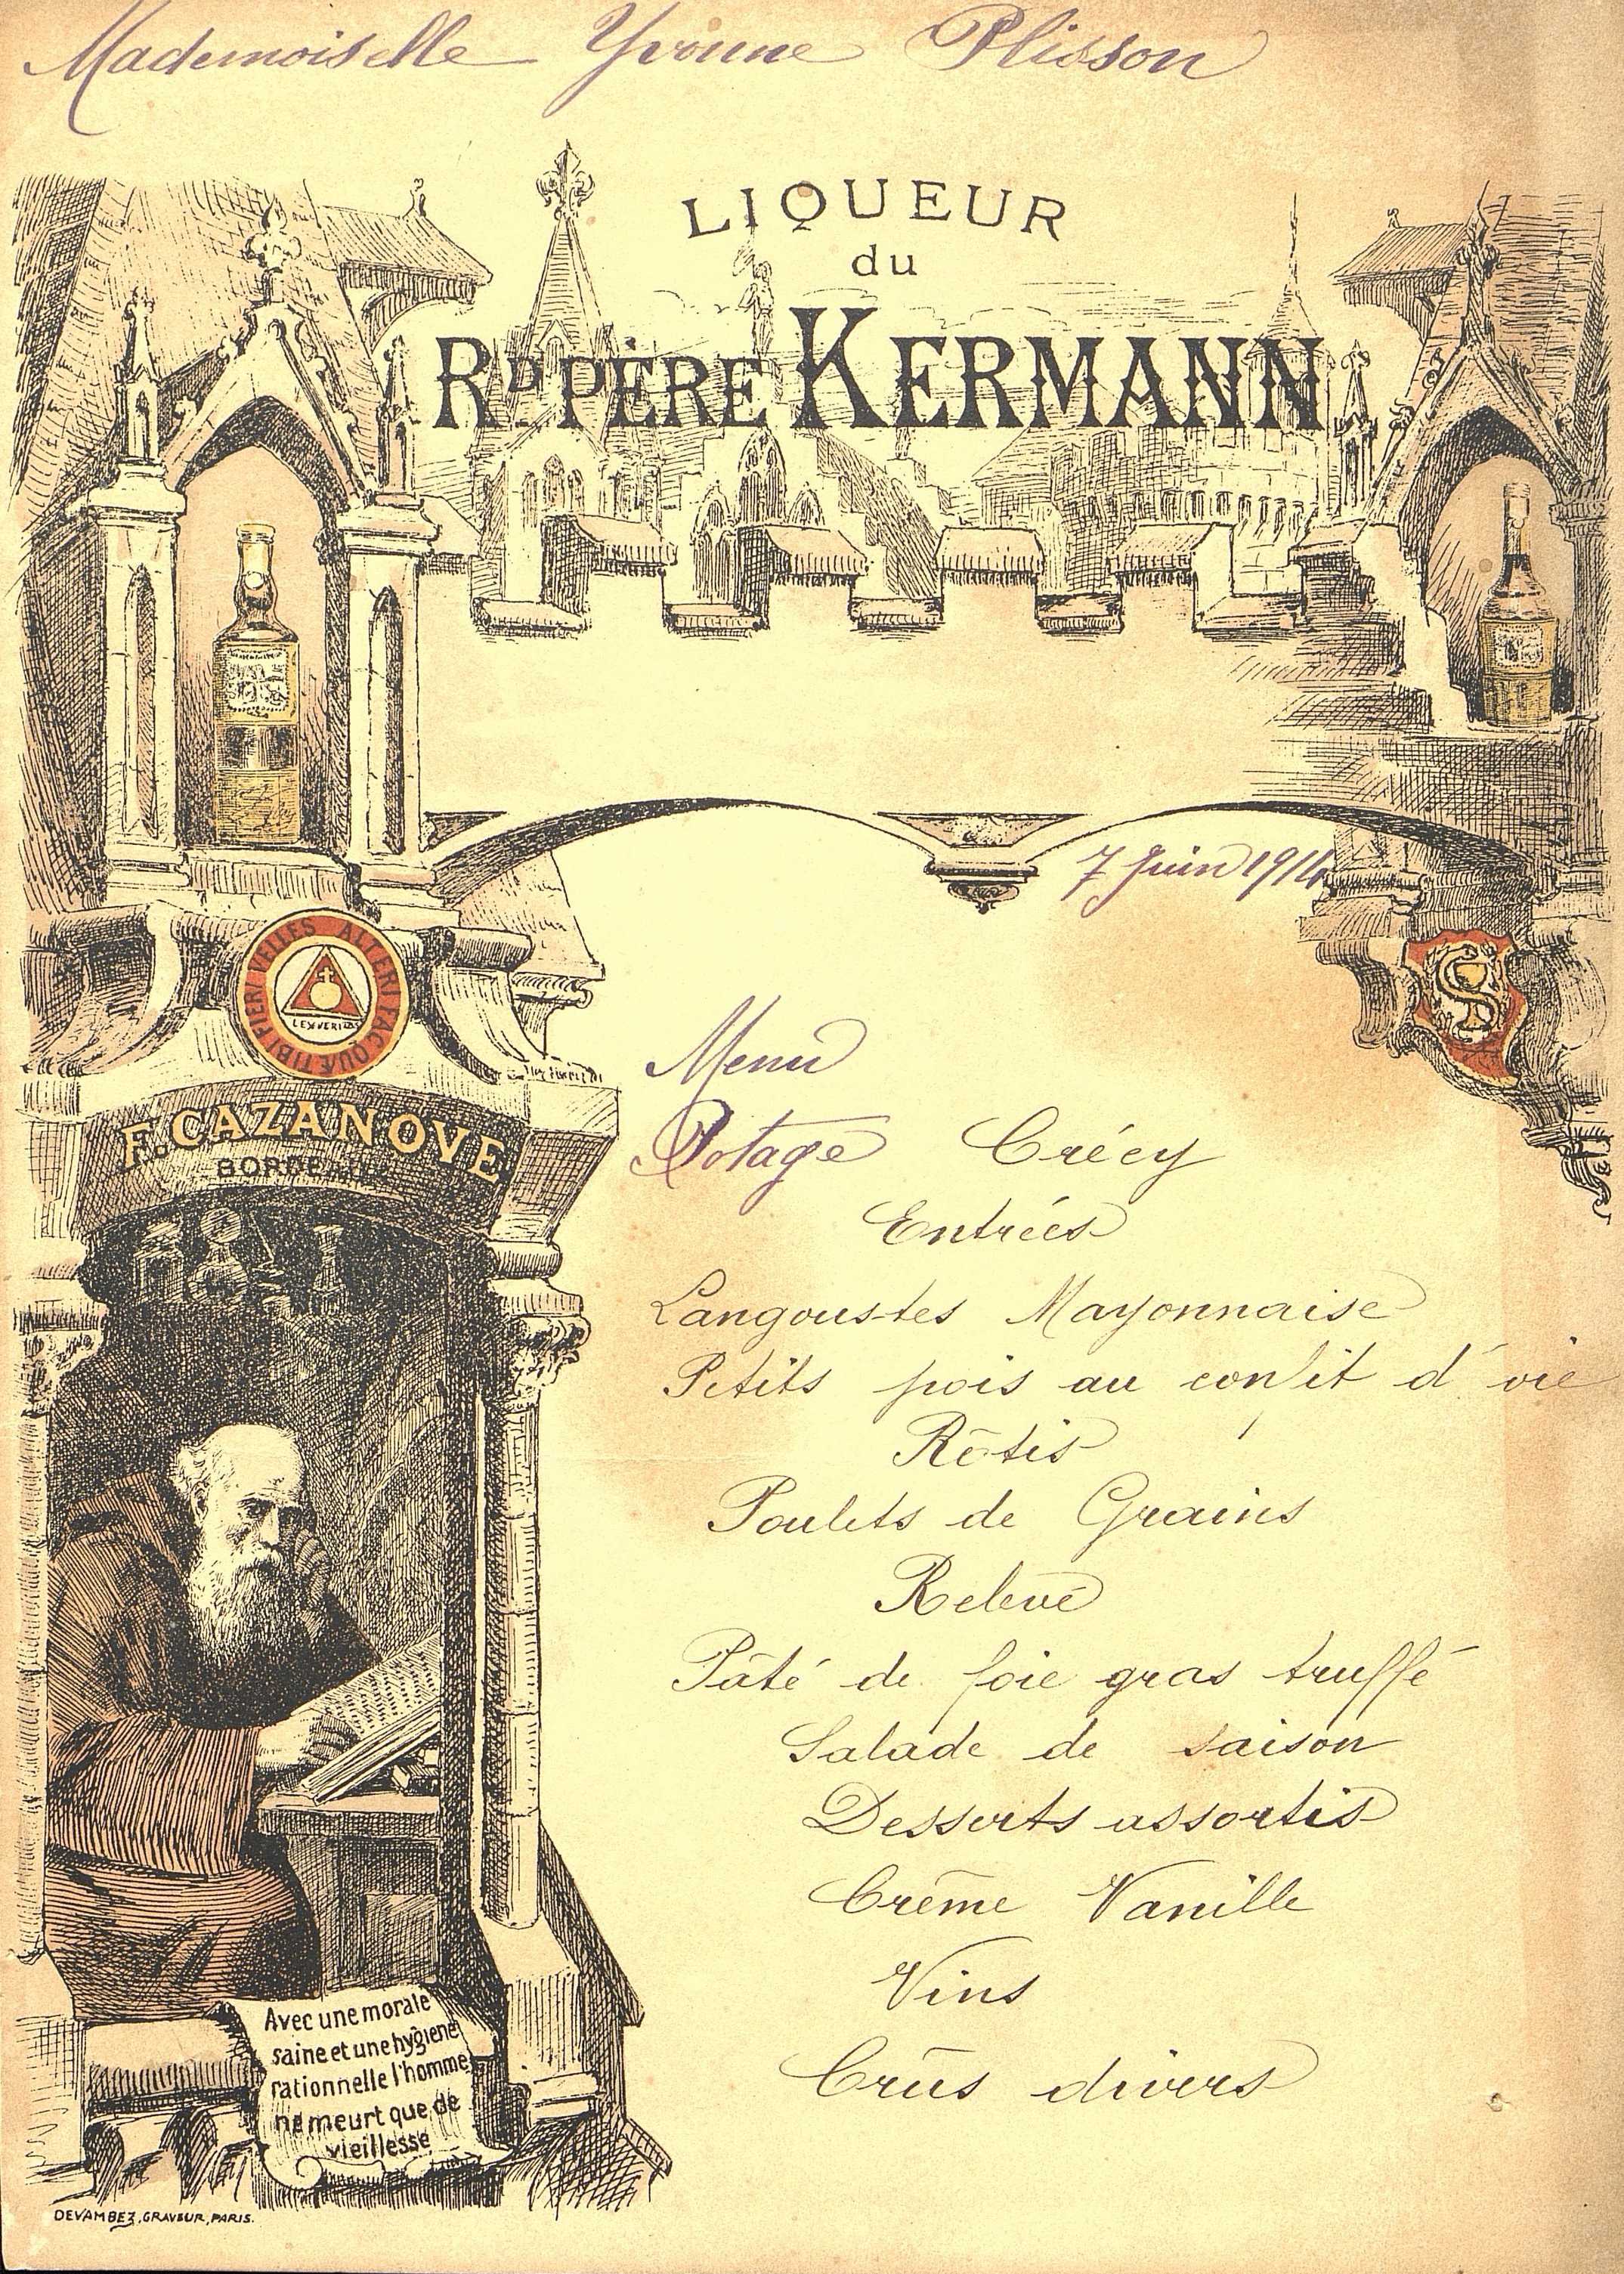 Mademoiselle Yvonne Plisson
LIQUEUR
du
RD PÈRE KERMANN
7 Juin 1914
FAC QUÆ TIBI FIERI VELLES ALTERI
LEX VERITAS
F. CAZANOVE
BORDEAUX
Menu
Potage Crécy
Entrées
Langoustes Mayonnaise
Petits pois au confit d'oie
Rôtis
Poulets de Grains
Relevé
Pâté de foie gras truffé
Salade de saison
Desserts assortis
Crême Vanille
Vins
Crûs divers
Avec une morale
saine et une hygiene
rationnelle l'homme
ne meurt que de
vieillesse
DEVAMBEZ, GRAVEUR, PARIS.